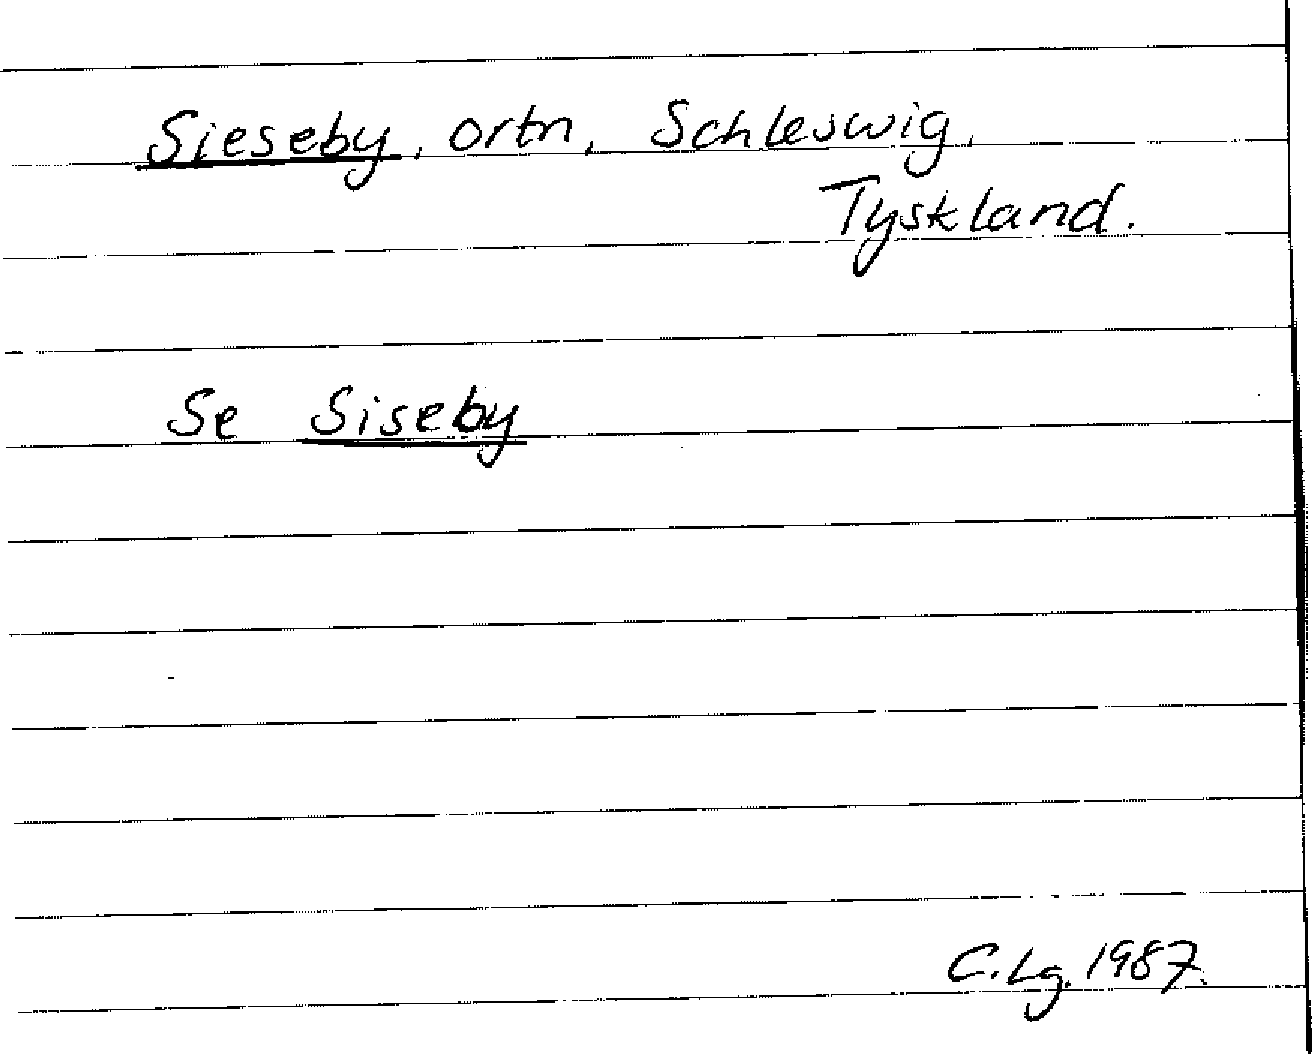 Sieseby, ortn, Schleswig,
Tyskland.
Se Siseby
C.Lg. 1987.